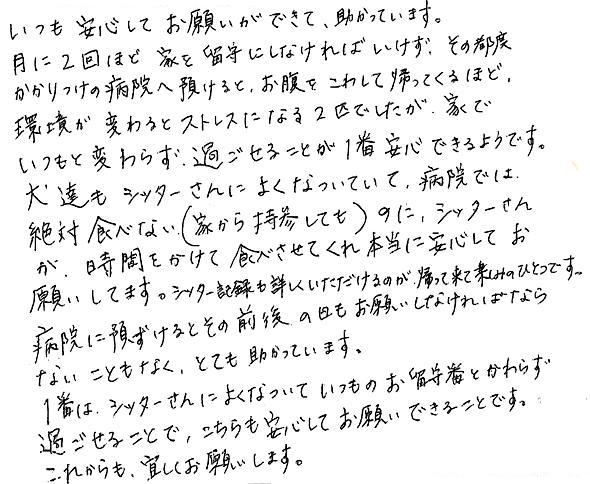 いつも安心してお願いができて、助かっています。
月に2回ほど家を留守にしなければいけず、その都度
かかりつけの病院へ預けると、お腹をこわして帰ってくるほど、
環境が変わるとストレスになる2匹でしたが、家で
いつもと変わらず、過ごせることが1番安心できるようです。
犬達もシッターさんによくなついていて、病院では
絶対食べない(家から持参しても)のに、シッターさん
が、時間をかけて食べさせてくれ本当に安心してお
願いしてます。シッター記録も詳しくいただけるのが、帰って来て楽しみのひとつです。
病院に預ずけるとその前後の日もお願いしなければなら
ないこともなく、とても助かっています。
1番は、シッターさんによくなついていつものお留守番とかわらず
過ごせることで、こちらも安心してお願いできることです。
これからも、宜しくお願いします。